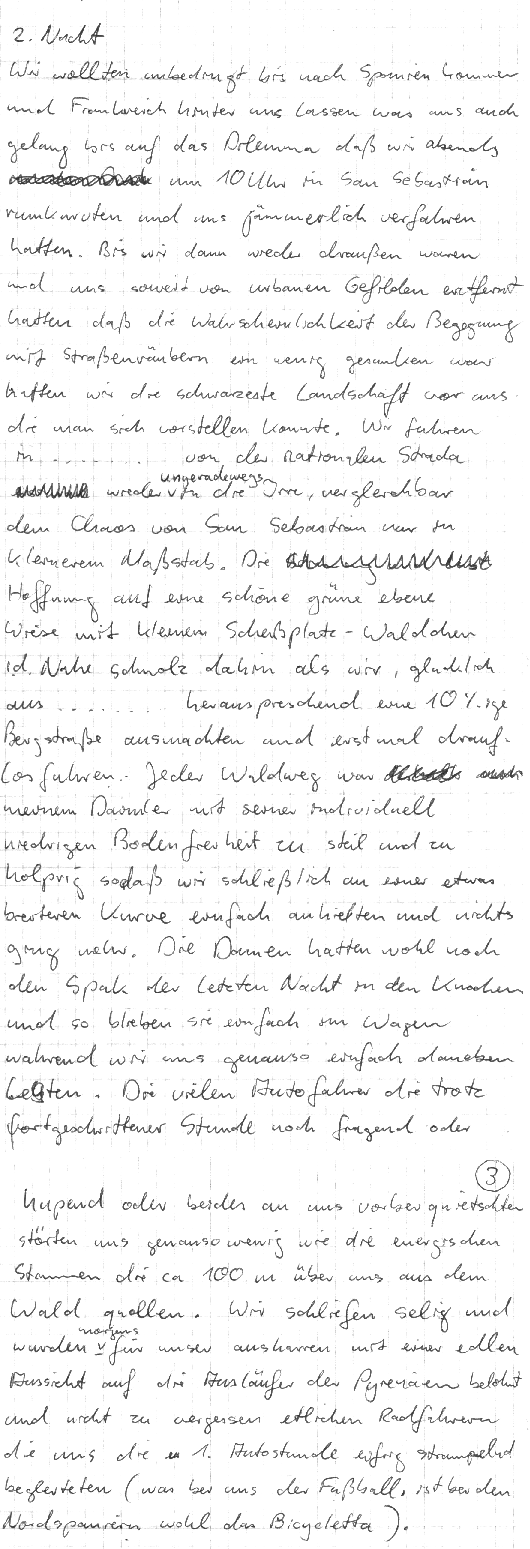 2. Nacht
Wir wollten unbedingt bis nach Spanien kommen
und Frankreich hinter uns lassen was uns auch
gelang bis auf das Dilemma daß wir abends
um 10 Uhr in San Sebastian
rumkurvten und uns jämmerlich verfahren
hatten. Bis wir dann wieder draußen waren
und uns soweit von urbanen Gefilden entfernt
hatten daß die Wahrscheinlichkeit der Begegnung
mit Straßenräubern ein wenig gesunken war
hatten wir die schwärzeste Landschaft vor uns
die man sich vorstellen konnte. Wir fuhren
in ........ von der nationalen Strada
wieder ungeradewegs in die Irre, vergleichbar
dem Chaos von San Sebastian nur in
kleinerem Maßstab. Die
Hoffnung auf eine schöne grüne ebene
Wiese mit kleinem Scheißplatz-Wäldchen
i.d. Nähe schmolz dahin als wir, glücklich
aus ........ herauspreschend eine 10%ige
Bergstraße ausmachten und erstmal drauf-
losfuhren. Jeder Waldweg war
meinem Daimler mit seiner individuell
niedrigen Bodenfreiheit zu steil und zu
holprig sodaß wir schließlich an einer etwas
breiteren Kurve einfach anhielten und nichts
ging mehr. Die Damen hatten wohl noch
den Spuk der letzten Nacht in den Knochen
und so blieben sie einfach im Wagen
während wir uns genauso einfach daneben
legten. Die vielen Autofahrer die trotz
fortgeschrittener Stunde noch fragend oder
3
hupend oder beides an uns vorbeiquietschten
störten uns genausowenig wie die energischen
Stimmen die ca 100 m über uns aus dem
Wald quollen. Wir schliefen selig und
wurden morgens für unser ausharren mit einer edlen
Aussicht auf die Ausläufer der Pyrenäen belohnt
und nicht zu vergessen etlichen Radfahrern
die uns die 1. Autostunde eifrig strampelnd
begleiteten (was bei uns der Fußball, ist bei den
Nordspaniern wohl das Bicycletta).